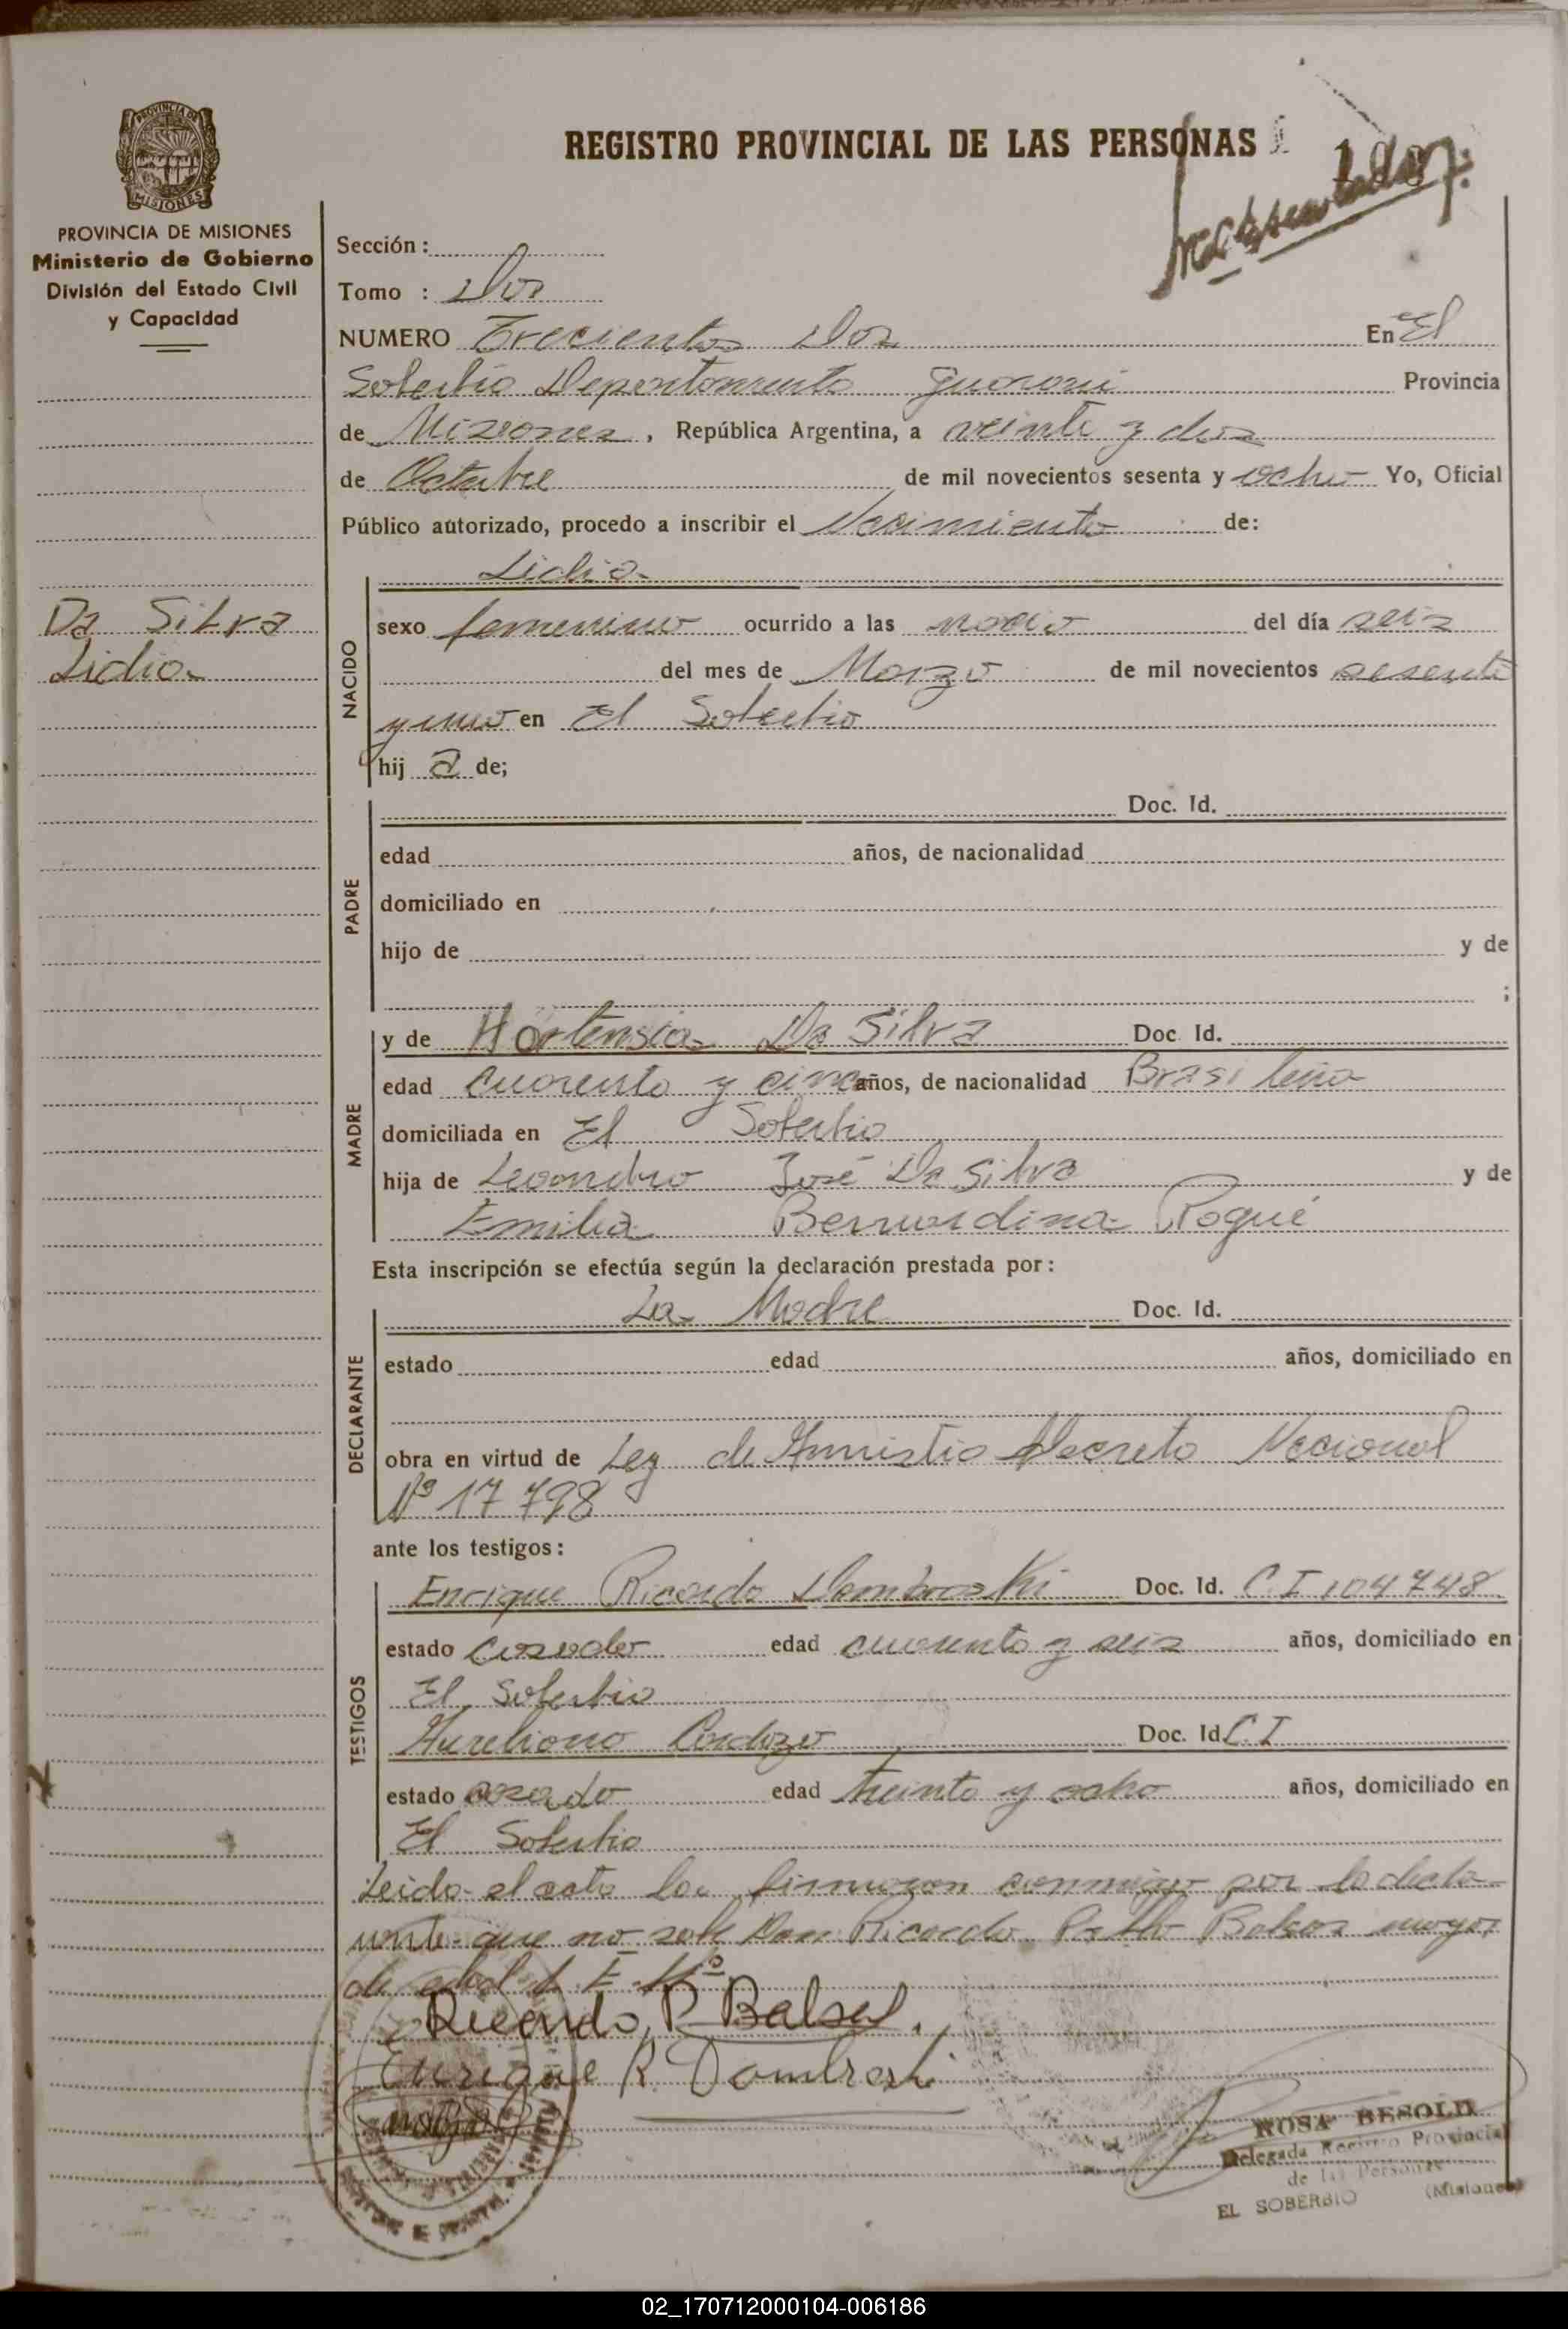 PROVINCIA DE
MISIONES
PROVINCIA DE MISIONES
Ministerio de Gobierno
División del Estado Civil
y Capacidad
REGISTRO PROVINCIAL DE LAS PERSONAS
Sección :
Tomo : Dos
NUMERO Trecientos Dos En El
Soberbio Departamento Guarani Provincia
de Misiones , República Argentina, a veinte y dos
de Octubre de mil novecientos sesenta y ocho Yo, Oficial
Público autorizado, procedo a inscribir el Nacimiento de:
Lidia
Da Silva
Lidia
NACIDO
sexo femenino ocurrido a las del día seis
del mes de Marzo de mil novecientos sesenta
y uno en El Soberbio
hij a de;
PADRE
Doc. Id.
edad años, de nacionalidad
domiciliado en
hijo de y de
;
MADRE
y de Hortensia Da Silva Doc. Id.
edad cuarenta y cinco años, de nacionalidad Brasileña
domiciliada en El Soberbio
hija de Leandro José Da Silva y de
Emilia Bernardina Rogué
Esta inscripción se efectúa según la declaración prestada por :
DECLARANTE
La Madre Doc. Id.
estado edad años, domiciliado en
obra en virtud de Ley de Amnistia Decreto Nacional
Nº 17 798
ante los testigos :
TESTIGOS
Enrique Ricardo Dombroski Doc. Id. C.I 104748
estado Casado edad cuarenta y seis años, domiciliado en
El Soberbio
Aureliano Cardozo Doc. Id C.I
estado casado edad treinta y ocho años, domiciliado en
El Soberbio
Leida el acta la firmaron conmigo por la decla-
rante que no sabe Don Ricardo mayor
de edad L.E. Nº
Ricardo P. Balsa
Enrique R. Dombroski
ROSA BESOLD
Delegada Registro Provincial
de las Personas
EL SOBERBIO (Misiones)
02_170712000104-006186